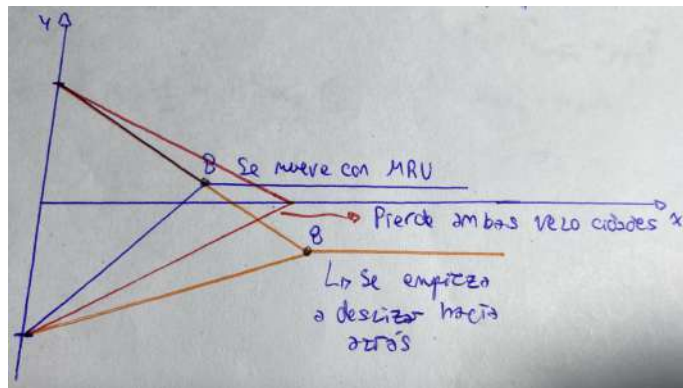 Y
B Se mueve con MRU
Pierde ambas velocidades x
B
Se empieza
a deslizar hacia
atrás